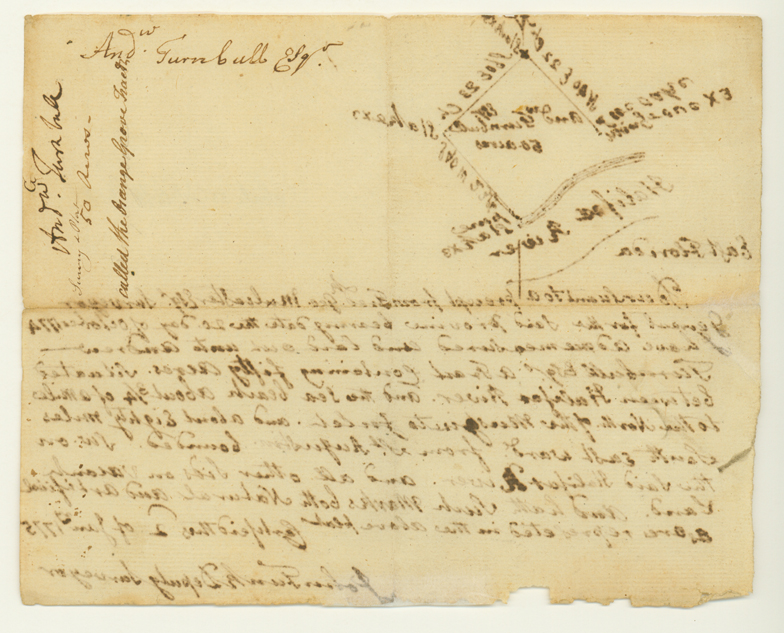 Andw Turnbull Esqr
Andw Turnbull
Survey & Plat
50 Acres
called the Orange Grove Tract
Stake
Andw Turnbull
50 acres
Stake
Stake
Halifax River
East Florida
Pursuant to a Precept from Mulcaster Esqr Surveyor
General for the Said Province bearing date the 20 day of October 1774
have admeasured and laid out unto Andrew
Turnbull Esqr a tract Containing fifty acres Situated
between Halifax River and the Sea beach about 3/4 of a mile
to the North of the Musquito Inlet and about Eighty miles
South eastward from St Augustine bounded SW. on
the Said Halifax River and all other Sides on Vacant
Land and hath Such Marks both Natural and artificial
as are represented in the above plat Certified this 2 of Jany 1775
John Funk Deputy Surveyor